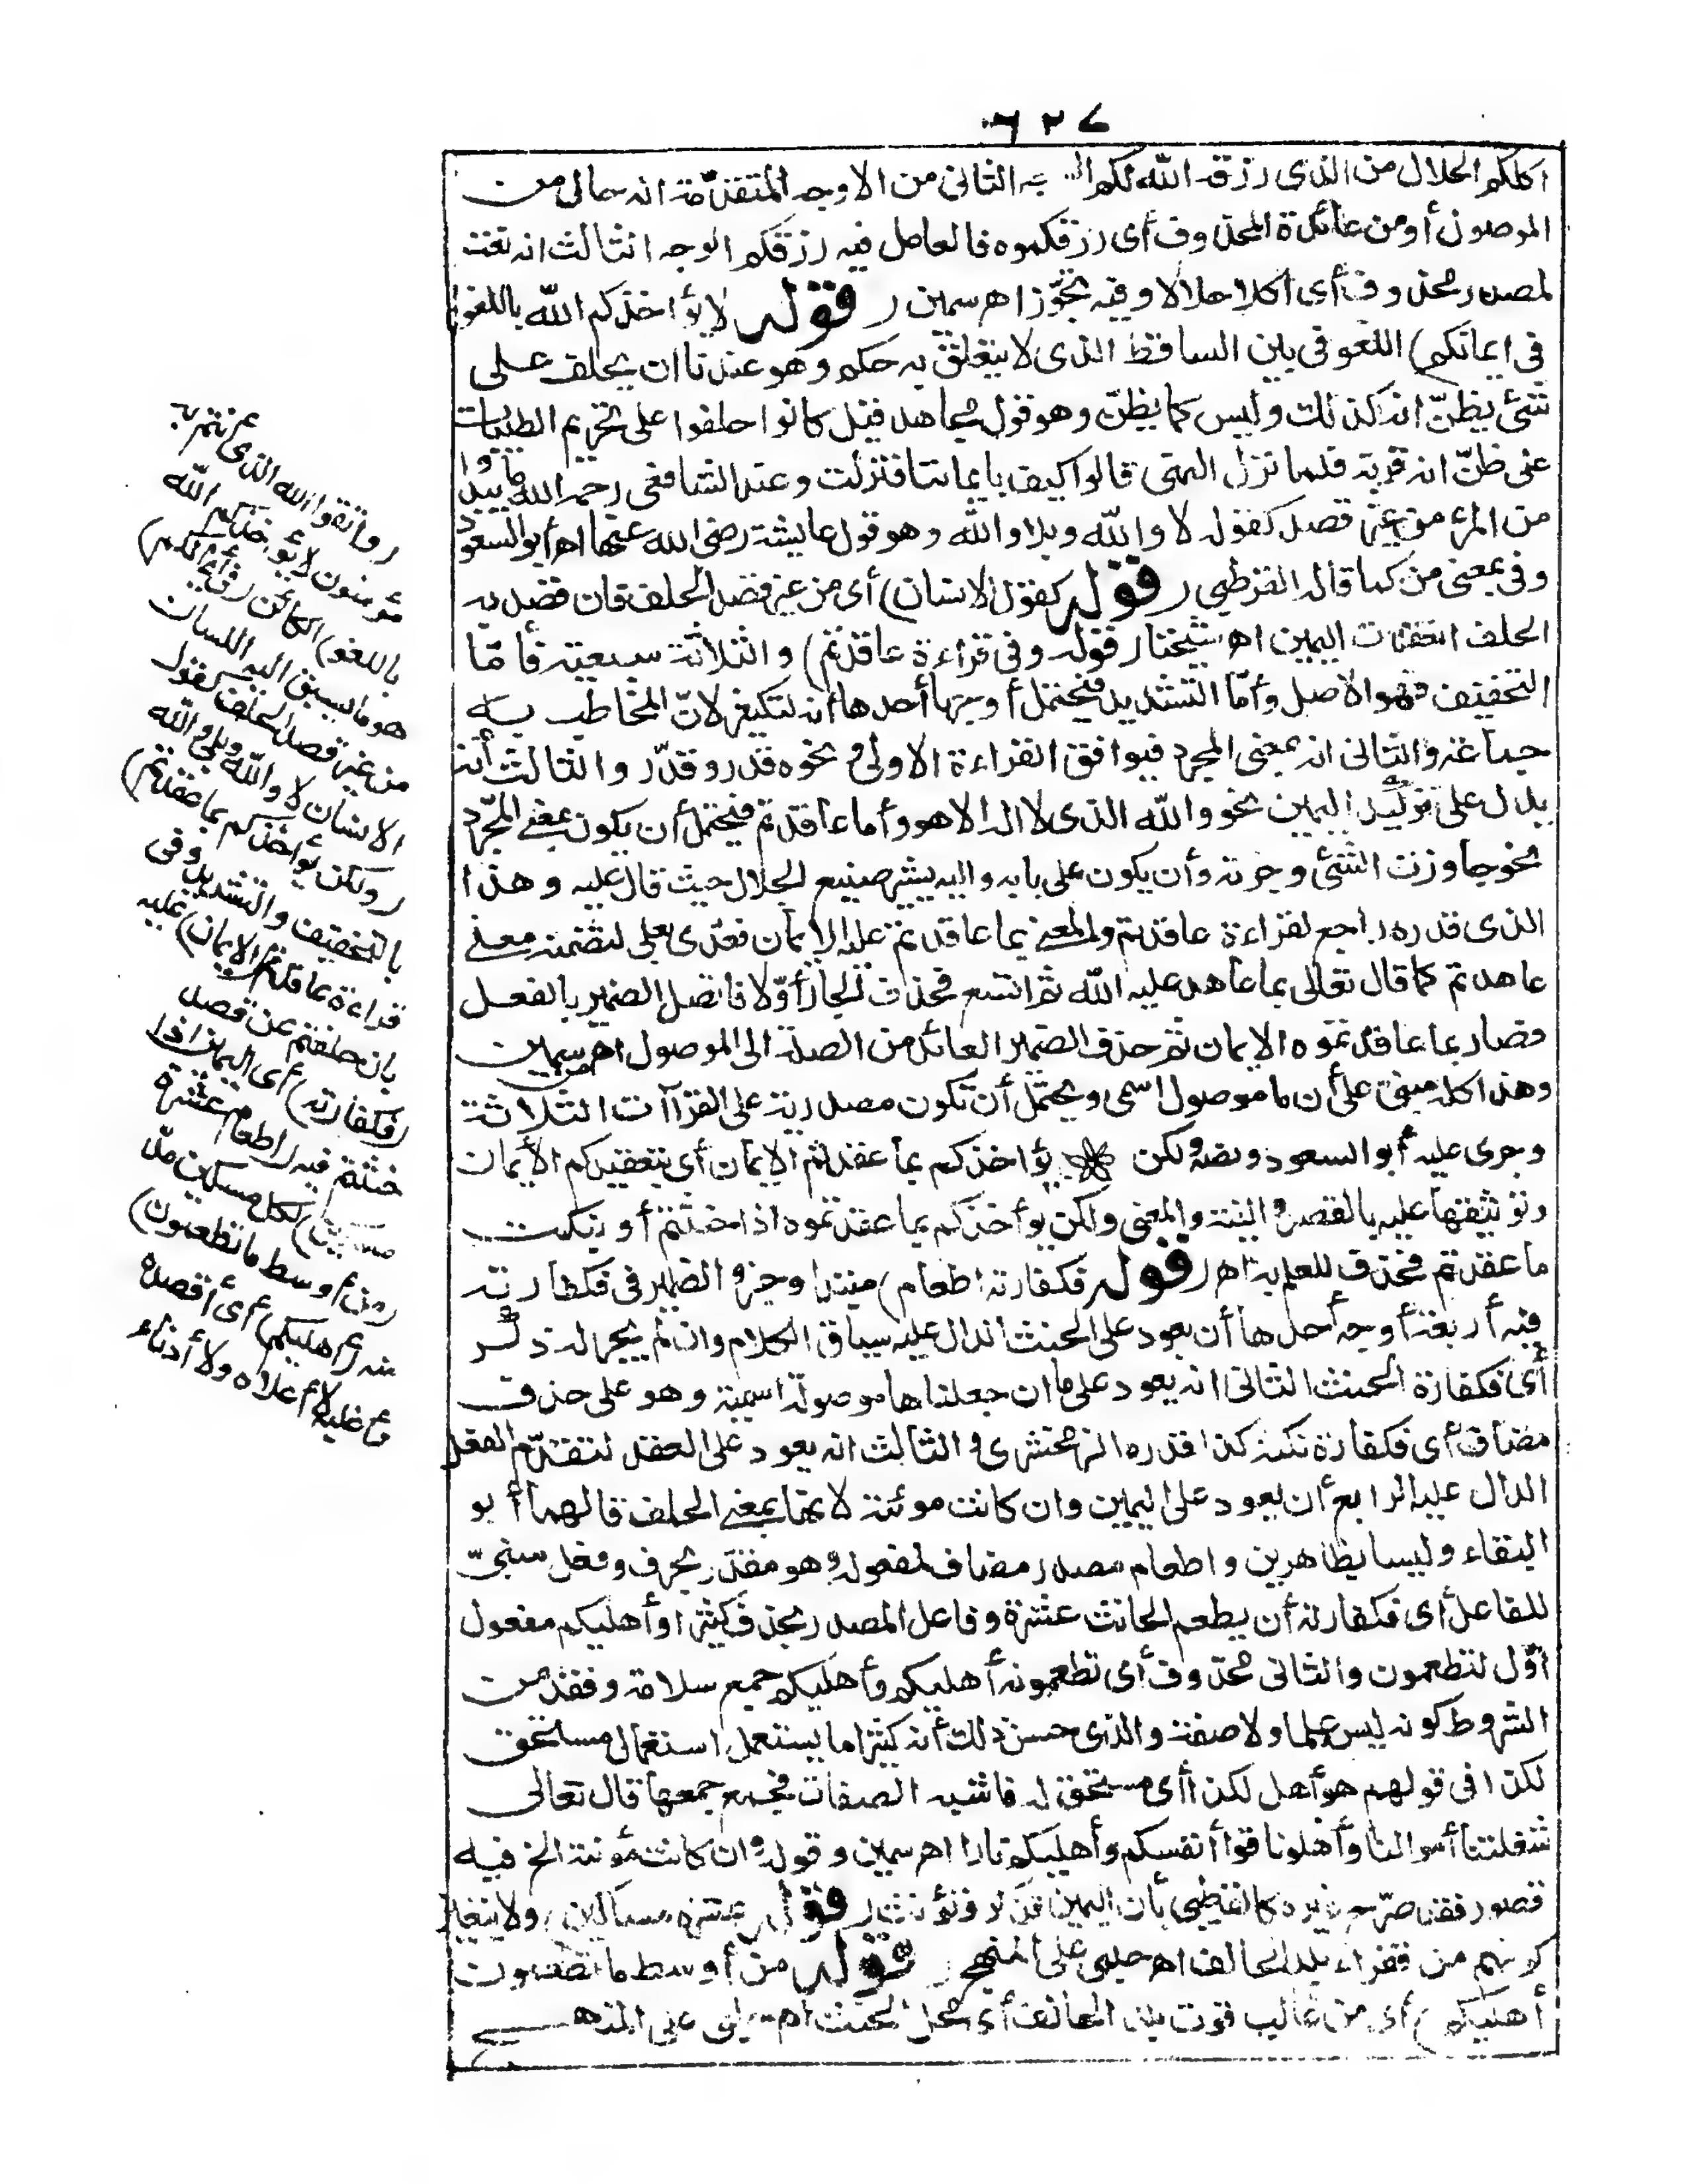 ٦٢٧
اكلكم الحلال من الذى رزقه الله لكم الثانى من الاوجه المتقدّمة انه حال من
الموصول أومن عائده المحذوف أى رزقكموه فالعامل فيه رزقكم الوجه الثالث انه نعت
لمصدر محذوف أى أكلا حلالا وفيه تجوّز اهـ سمين (قوله لا يؤاخذكم الله باللغو
فى ايمانكم) اللغو فى يمين الساقط الذى لا يتعلق به حكم وهو عندنا ان يحلف على
شئ يظنّ انه كذلك وليس كما يظنّ وهو قول مجاهد قيل كانوا حلفوا على تحريم الطيبات
على ظنّ انه قربة فلما نزل النهى قالوا كيف بايماننا فنزلت وعند الشافعى رحمه الله ما يبدوا
من المرء من غير قصد كقوله لا والله وبلا والله وهو قول عايشة رضى الله عنها اهـ أبو السعود
وفى بمعنى من كما قاله القرطبى (قوله كقول الانسان) أى من غير قصد الحلف فان قصد به
الحلف انعقدت اليمين اهـ شيخنا (قوله وفى قراءة عاقدتم) والثلاثة سبعية فأمّا
التخفيف فهو الاصل وأمّا التشديد فيحتمل أوجها أحدها أنه لتكثير لانّ المخاطب به
جماعة والثانى انه بمعنى المجرد فيوافق القراءة الاولى ونحوه قدر وقدّر والثالث أنه
يدل على توكيد اليمين نحو والله الذى لا اله الا هو وأما عاقدتم فيحتمل أن يكون بمعنى المجرّد
نحو جاوزت الشئ وجزته وأن يكون على بابه واليه يشير صنيع الجلال حيث قال عليه وهذا
الذى قدره راجع لقراءة عاقدتم والمعنى بما عاقدتم عليه الايمان فعدّى بعلى لتضمنه معنى
عاهدتم كما قال تعالى بما عاهد عليه الله ثم اتسع فحذف الجار أوّلا فاتصل الضمير بالفعل
فصار بما عاقدتموه الايمان ثم حذف الضمير العائد من الصلة الى الموصول اهـ من سمين
وهذا كله مبنى على أن ما موصول اسمى ويحتمل أن تكون مصدرية على القراآت الثلاثة
وجرى عليه أبو السعود ونصه ولكن يؤاخذكم بما عقدتم الايمان أى بتعقيدكم الأيمان
وتوثيقها عليه بالقصد والنية والمعنى ولكن يؤاخذكم بما عقدتموه اذا حنثتم أو بنكث
ما عقدتم فحذف للعلم به اهـ (قوله فكفارته اطعام) مبتدا وخبر والضمير فى فكفارته
فيه أربعة أوجه أحدها أن يعود على الحنث الدال عليه سياق الكلام وان لم يجر له ذكر
أى فكفارة الحنث الثانى انه يعود على ما ان جعلناها موصولة اسمية وهو على حذف
مضاف أى فكفارة نكثه كذا قدره الزمخشرى والثالث انه يعود على العقد لتقدّم الفعل
الدال عليه الرابع أن يعود على اليمين وان كانت مؤنثة لانها بمعنى الحلف قالهما أبو
البقاء وليسا بظاهرين واطعام مصدر مضاف لمفعوله وهو مقدّر بحرف وفعل مبنىّ
للفاعل أى فكفارته أن يطعم الحانث عشرة وفاعل المصدر يحذف كثيرا وأهليكم مفعول
أوّل لتطعمون والثانى محذوف أى تطعمونه أهليكم وأهليكم جمع سلامة وفقد من
الشروط كونه ليس علما ولا صفة والذى حسن ذلك أنه كثيرا ما يستعمل استعمال مستحق
لكذا فى قولهم هو أهل لكذا أى مستحق له فاشبه الصفات فجمع جمعها قال تعالى
شغلتنا أموالنا وأهلونا قوا أنفسكم وأهليكم نارا اهـ سمين وقوله وان كانت مؤنثة الخ فيه
قصور فقد صرّح غيره كالقرطبى بأن اليمين تذكر وتؤنث (قوله عشرة مساكين) ولا يتعين
كونهم من فقراء بلد الحالف اهـ حلبى على المنهج (قوله من أوسط ما تطعمون
أهليكم) أى من غالب قوت بلد الحالف أى محل الحنث اهـ على المنهج
(واتقوا الله الذى أنتم به
مؤمنون لا يؤاخذكم الله
باللغو) الكائن (فى أيمانكم)
هو ما يسبق اليه اللسان
من غير قصد الحلف كقول
الانسان لا والله وبلى والله
(ولكن يؤاخذكم بما عقدتم)
بالتخفيف والتشديد وفى
قراءة عاقدتم (الايمان) عليه
بان حلفتم عن قصد
(فكفارته) أى اليمين اذا
حنثتم فيه (اطعام عشرة
مساكين) لكل مسكين مدّ
(من أوسط ما تطعمون)
منه (أهليكم) أى أقصده
وأغلبه لا أعلاه ولا أدناه